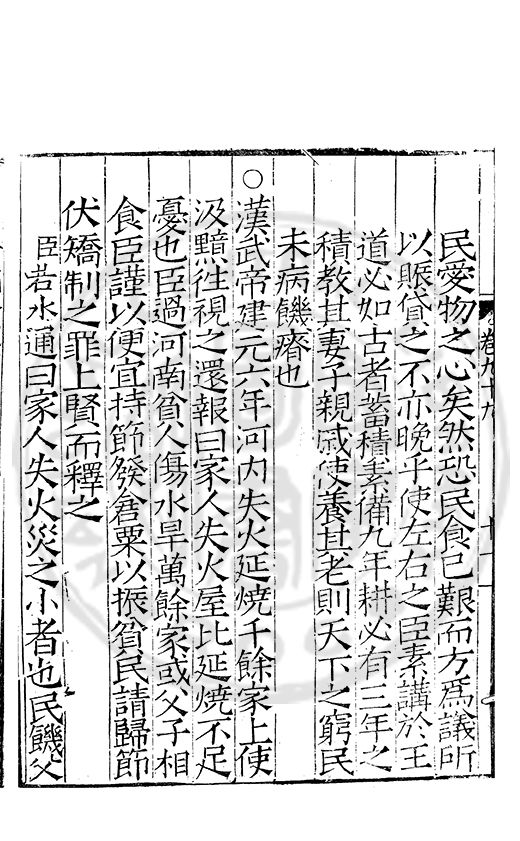 民愛物之心矣然恐民食已艱而方為議所
以賑貸之不亦晚乎使左右之臣素講於王
道必如古者蓄積素備九年耕必有三年之
積教其妻子親戚使養其老則天下之窮民
未病饑瘠也
○漢武帝建元六年河内失火延燒千餘家上使
汲黯往視之還報曰家人失火屋比延燒不足
憂也臣過河南貧人傷水旱萬餘家或父子相
食臣謹以便宜持節發倉粟以振貧民請歸節
伏矯制之罪上賢而釋之
臣若水通曰家人失火災之小者也民饑父
卷九十九